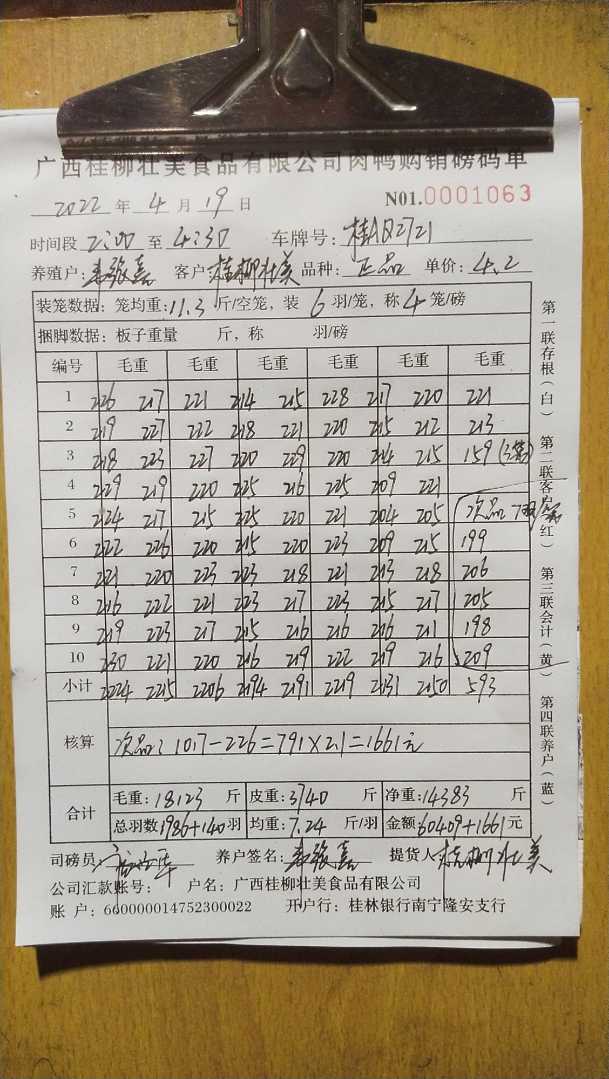 广西桂柳壮美食品有限公司肉鸭购销磅码单
2022 年 4 月 19 日 N01.0001063
时间段 2:00 至 4:30 车牌号: 桂A
养殖户: 客户: 桂柳壮美 品种: 正品 单价: 4.2
装笼数据: 笼均重: 11.3 斤/空笼, 装 6 羽/笼, 称 4 笼/磅
捆脚数据: 板子重量 斤, 称 羽/磅
编号 毛重 毛重 毛重 毛重 毛重 毛重
1 226 217 221 214 215 228 217 220 221
2 219 227 222 218 221 220 215 212 213
3 218 223 227 220 229 220 214 215 159
4 229 219 220 225 216 225 209 221
5 224 217 215 225 220 221 204 205 次品
6 222 226 220 215 220 223 209 215 199
7 221 220 223 223 218 221 213 218 206
8 216 222 221 223 217 223 215 217 205
9 219 223 217 215 216 216 216 211 198
10 230 221 220 216 219 222 219 216 209
小计 2224 2215 2206 2194 2191 2219 2131 2150 593
核算 次品: 1017-226=791×2.1=1661元
合计 毛重: 18123 斤 皮重: 3740 斤 净重: 14383 斤
总羽数 1986+140 羽 均重: 7.24 斤/羽 金额: 60409+1661 元
司磅员: 养户签名: 提货人: 桂柳壮美
公司汇款账号: 户名: 广西桂柳壮美食品有限公司
账 户: 660000014752300022 开户行: 桂林银行南宁隆安支行
第一联存根(白) 第二联客户(红) 第三联会计(黄) 第四联养户(蓝)